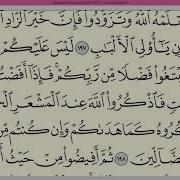 لَمْهُ ٱللَّهُ وَتَزَوَّدُوا۟ فَإِنَّ خَيْرَ ٱلزَّادِ
نِ يَـٰٓأُو۟لِى ٱلْأَلْبَـٰبِ ١٩٧ لَيْسَ عَلَيْكُمْ
تَغُوا۟ فَضْلًا مِّن رَّبِّكُمْ فَإِذَآ أَفَضْتُ
تٍ فَٱذْكُرُوا۟ ٱللَّهَ عِندَ ٱلْمَشْعَرِ
كُرُوهُ كَمَا هَدَىٰكُمْ وَإِن كُنتُم
ضَّآلِّينَ ١٩٨ ثُمَّ أَفِيضُوا۟ مِنْ حَيْثُ أَ